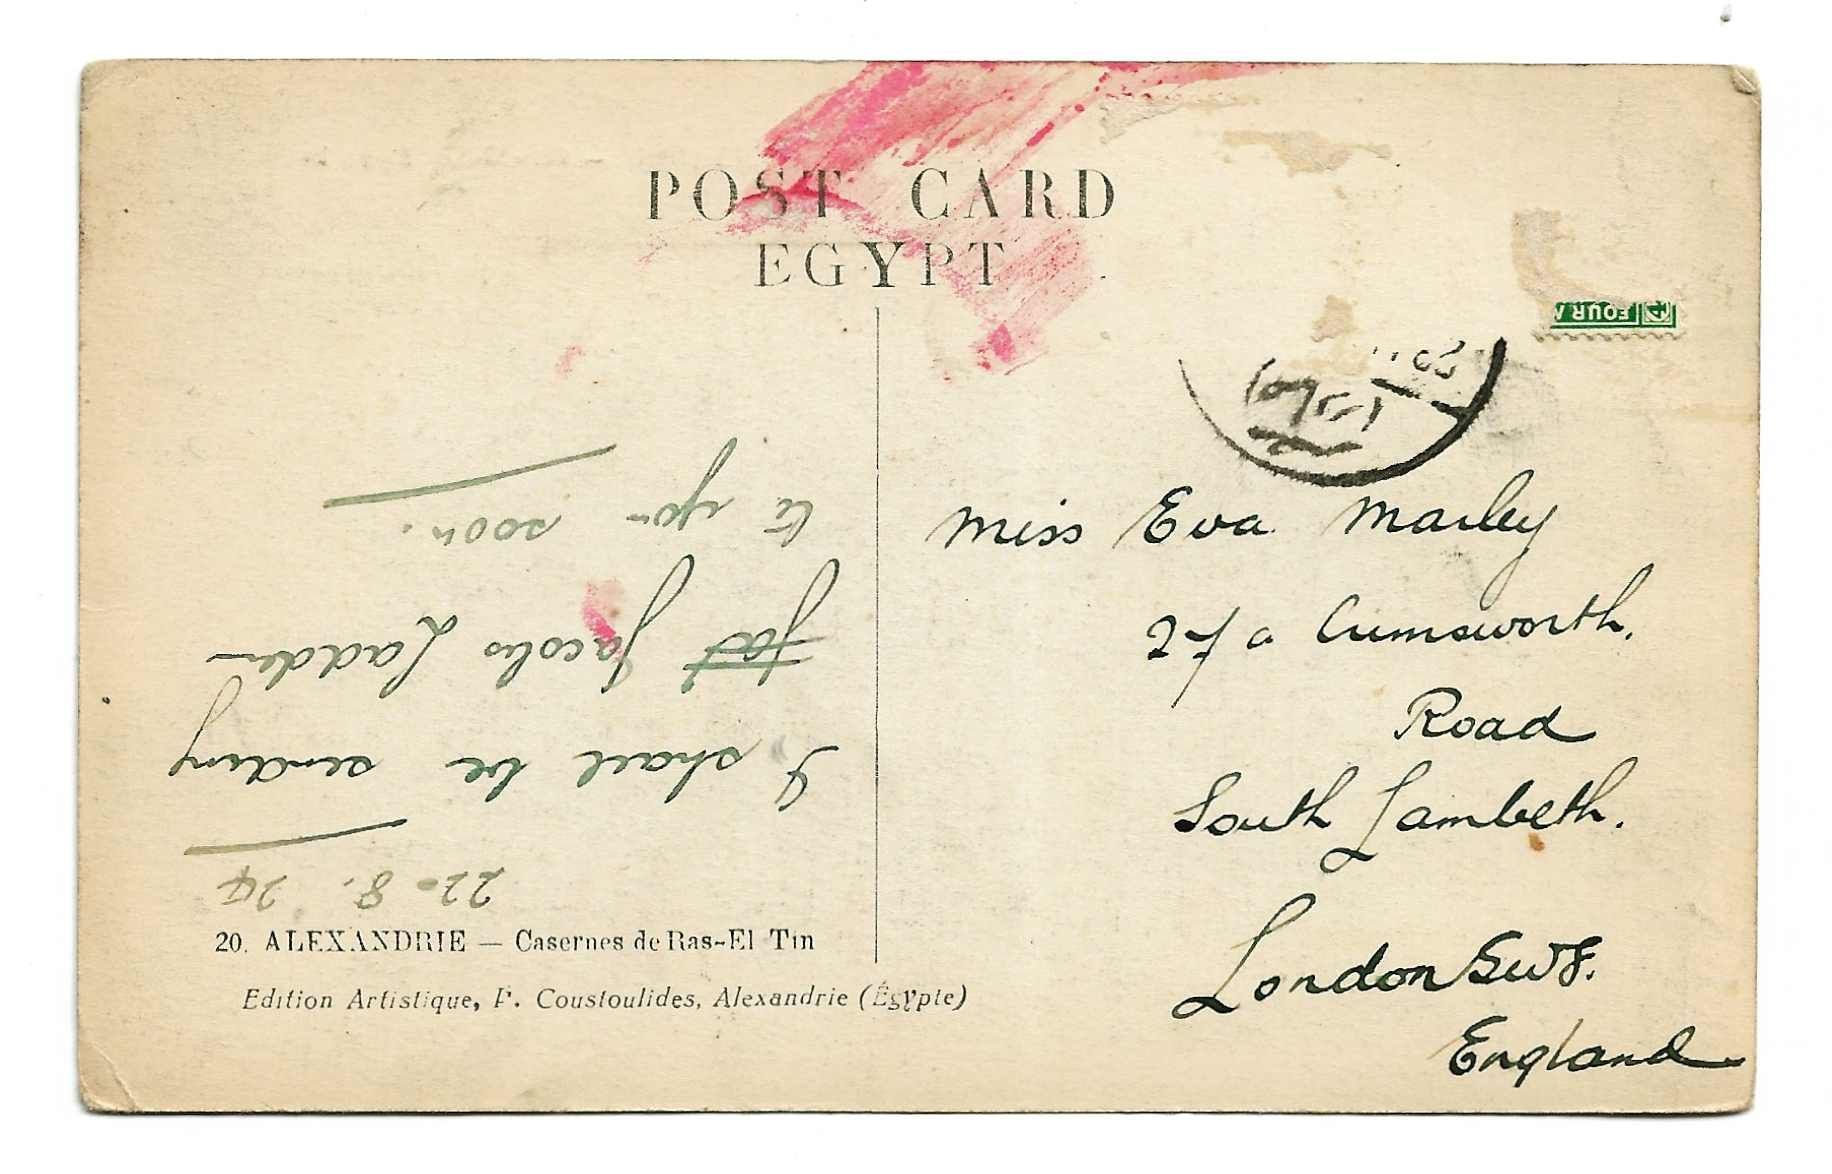 POST CARD
EGYPT
FOUR
22-8.24
I shall be sending
Jacobs Ladder
to you soon.
Miss Eva Marley
27a Cumsworth.
Road
South Lambeth.
London SW8.
England
20. ALEXANDRIE — Casernes de Ras-El Tin
Edition Artistique, P. Coustoulides, Alexandrie (Égypte)